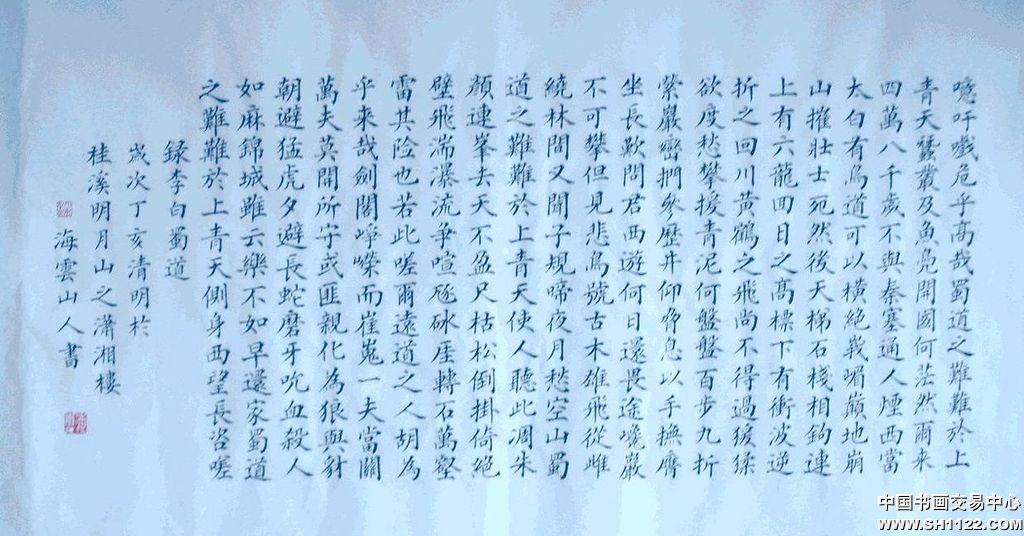 噫吁戲危乎高哉蜀道之難難於上
青天蠶叢及魚鳧開國何茫然爾来
四萬八千歲不與秦塞通人煙西當
太白有鳥道可以橫絶峩嵋巔地崩
山摧壯士死然後天梯石棧相鉤連
上有六龍回日之高標下有衝波逆
折之回川黃鶴之飛尚不得過猨猱
欲度愁攀援青泥何盤盤百步九折
縈巖巒捫參歷井仰脅息以手撫膺
坐長歎問君西遊何日還畏途巉巖
不可攀但見悲鳥號古木雄飛從雌
繞林間又聞子規啼夜月愁空山蜀
道之難難於上青天使人聽此凋朱
顏連峯去天不盈尺枯松倒掛倚絶
壁飛湍瀑流爭喧豗砯厓轉石萬壑
雷其险也若此嗟爾遠道之人胡為
乎来哉劍閣崢嶸而崔嵬一夫當關
萬夫莫開所守或匪親化為狼與豺
朝避猛虎夕避長蛇磨牙吮血殺人
如麻錦城雖云樂不如早還家蜀道
之難難於上青天側身西望長咨嗟
録李白蜀道
歲次丁亥清明於
桂溪明月山之瀟湘樓
海雲山人書
中国书画交易中心
WWW.SH1122.COM